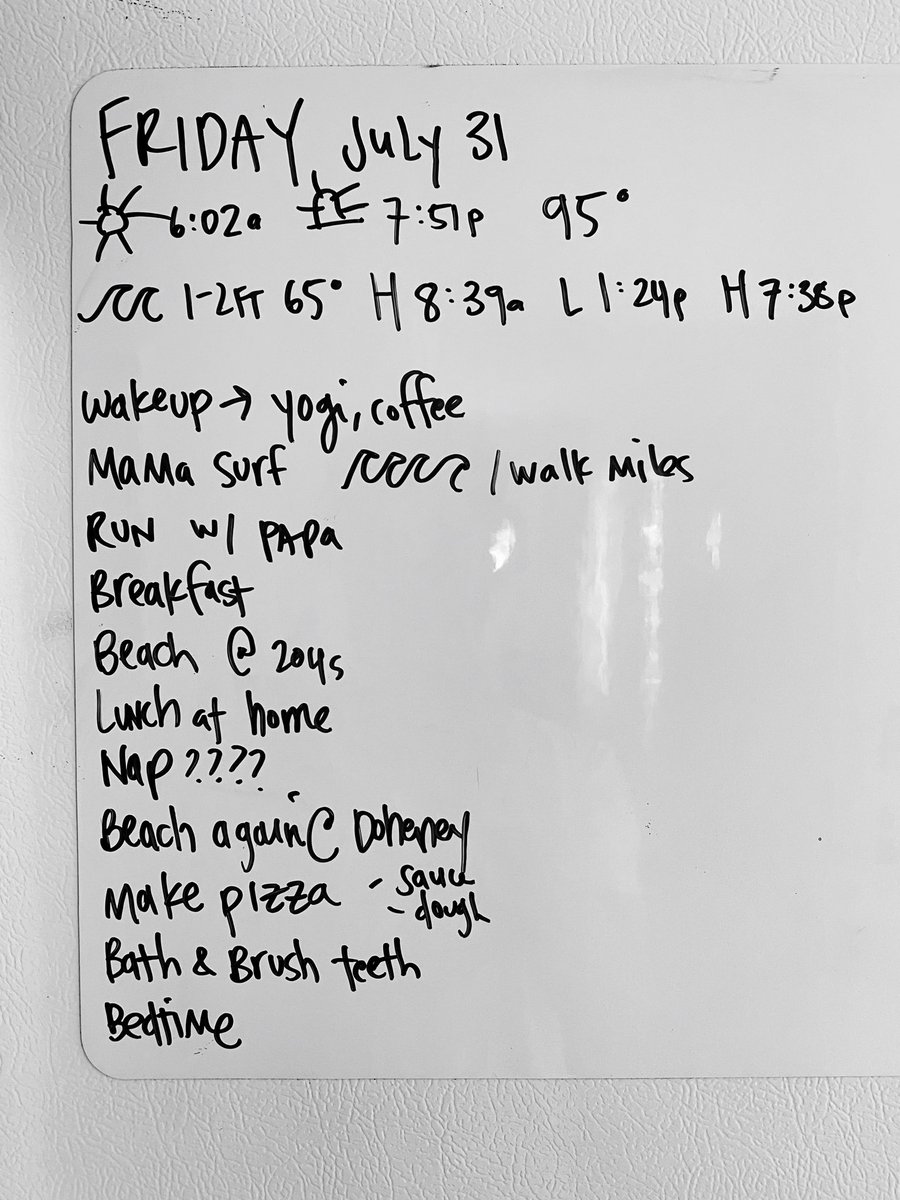 FRIDAY July 31
6:02a 7:51p 95°
1-2FT 65° H 8:39a L 1:24p H 7:38p
wakeup → yogi, coffee
MaMa Surf / walk miles
RUN w/ PAPa
Breakfast
Beach @ 204s
Lunch at home
Nap????
Beach again @ Doheney
Make pizza - sauce
- dough
Bath & Brush teeth
Bedtime